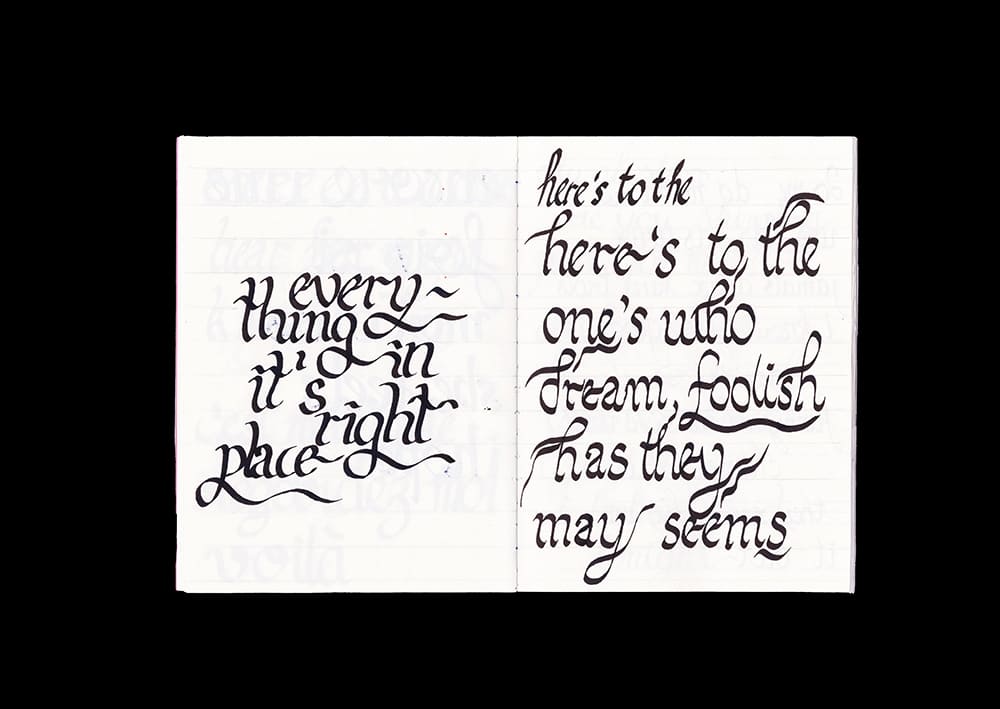 every~
thing in
it's right
place
here's to the
here's to the
one's who
dream, foolish
has they
may seems